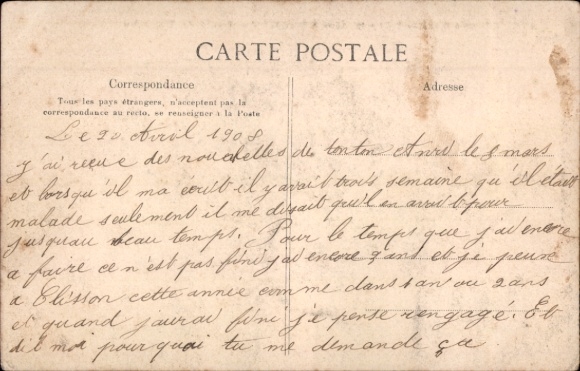 CARTE POSTALE
Correspondance
Adresse
Tous les pays étrangers, n'acceptent pas la
correspondance au recto, se renseigner à la Poste
Le 20 Avril 1908
j'ai reçue des nouvelles de tonton Anri le 8 mars
et lorsqu'il ma écrit il y avait trois semaine qu'il était
malade seulement il me disait qu'il en avait pour
jusquau beau temps. Pour le temps que j'ai encore
a faire ce n'est pas fini j'ai encore 3 ans et je peux
a Clisson cette année comme dans 1 an ou 2 ans
et quand j'aurai fini je pense rengagé. Et
dit moi pourquoi tu me demande ça